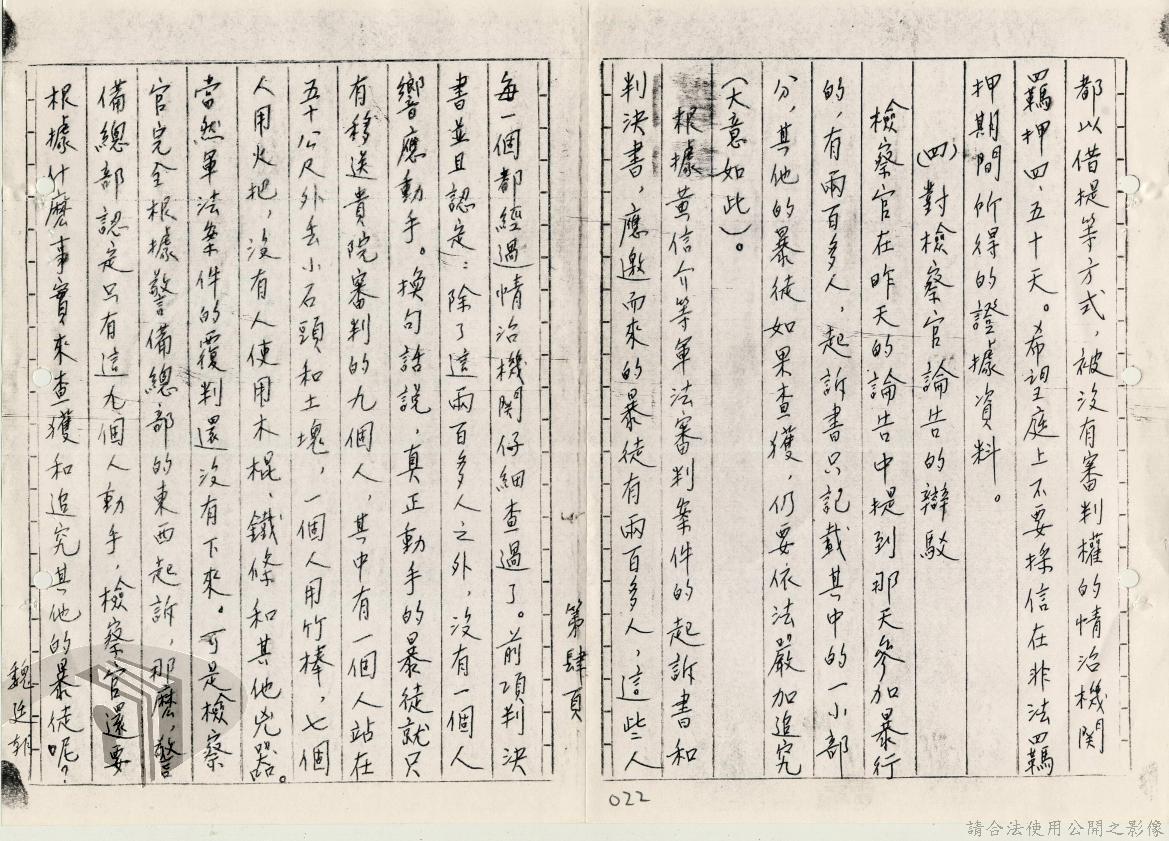 都以借提等方式，被沒有審判權的情治機関
羈押四、五十天。希望庭上不要採信在非法羈
押期間所得的證據資料。
(四)對檢察官論告的辯駁
檢察官在昨天的論告中提到那天參加暴行
的，有兩百多人，起訴書只記載其中的一小部
分，其他的暴徒如果查獲，仍要依法嚴加追究
(大意如此)。
根據黃信介等軍法審判案件的起訴書和
判決書，應邀而來的暴徒有兩百多人，這些人
022
第肆頁
每一個都經過情治機関仔細查過了。前項判決
書並且認定：除了這兩百多人之外，沒有一個人
響應動手。換句話說，真正動手的暴徒就只
有移送貴院審判的九個人，其中有一個人站在
五十公尺外丢小石頭和土塊，一個人用竹棒，七個
人用火把，沒有人使用木棍、鐵條和其他兇器。
當然軍法案件的覆判還沒有下來。可是檢察
官完全根據警備總部的東西起訴，那麼，警
備總部認定只有這九個人動手，檢察官還要
根據什麼事實來查獲和追究其他的暴徒呢？
魏廷朝
請合法使用公開之影像